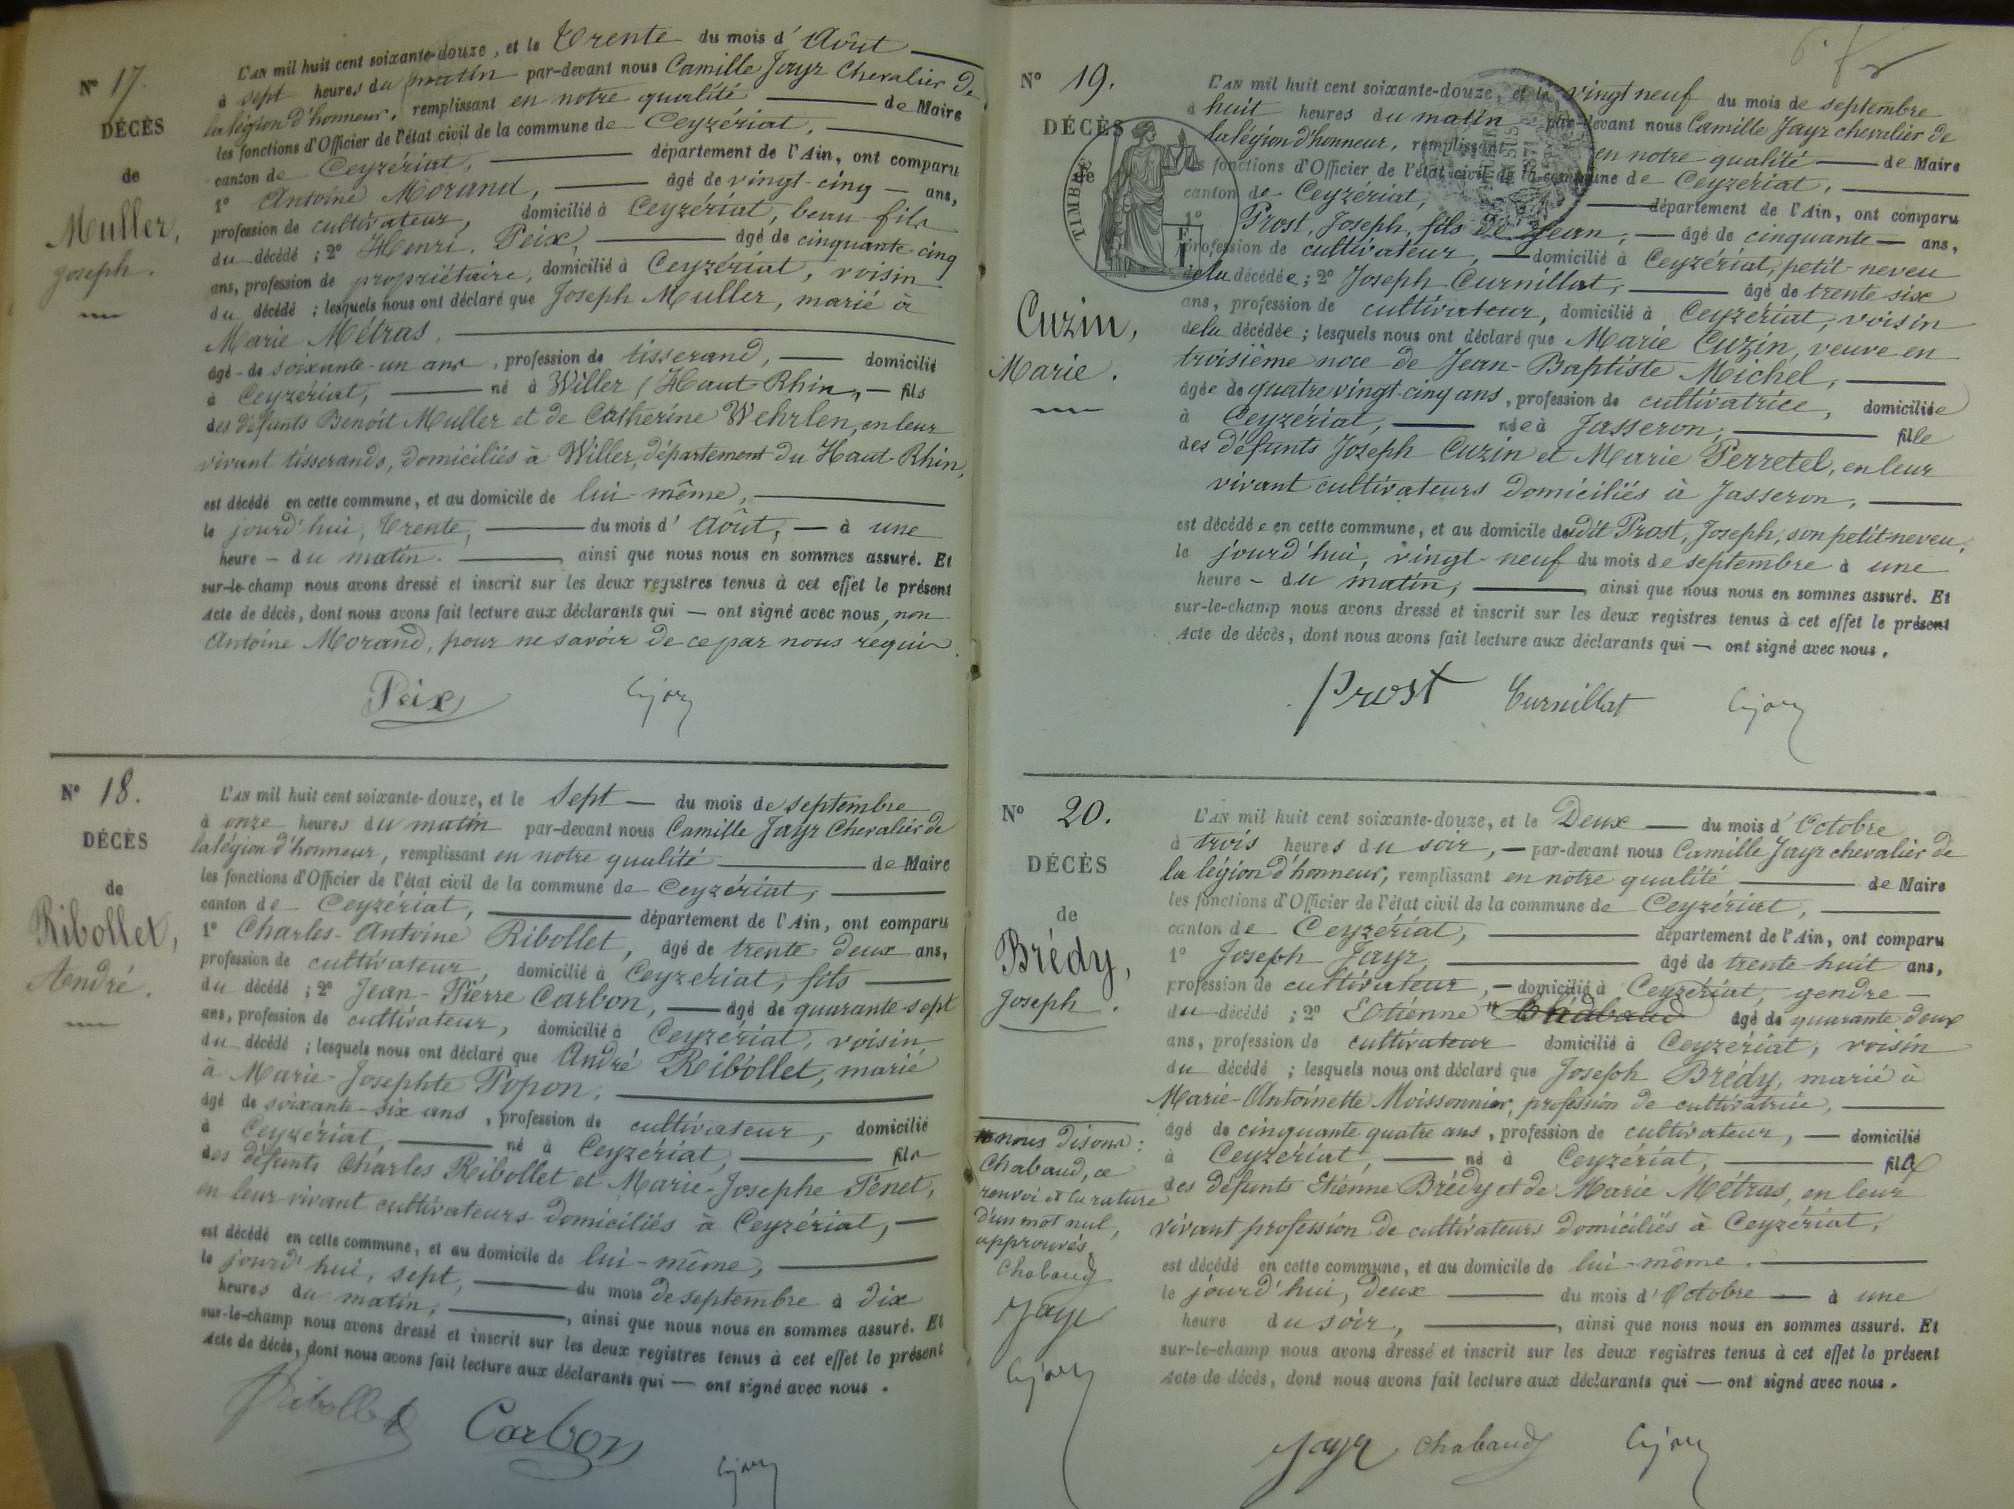 N° 17.
DÉCÈS
de
Muller,
Joseph.
L'AN mil huit cent soixante-douze, et le Trente du mois d' Août
à sept heures du matin par-devant nous Camille Jayr Chevalier de
la légion d'honneur, remplissant en notre qualité de Maire
les fonctions d'Officier de l'état civil de la commune de Ceyzériat,
canton de Ceyzériat, département de l'Ain, ont comparu
1° Antoine Morand, âgé de vingt-cinq ans,
profession de cultivateur, domicilié à Ceyzériat, beau-fils
du décédé ; 2° Henri Peix, âgé de cinquante-cinq
ans, profession de propriétaire, domicilié à Ceyzériat, voisin
du décédé ; lesquels nous ont déclaré que Joseph Muller, marié à
Marie Métras,
âgé de soixante-un ans, profession de tisserand, domicilié
à Ceyzériat, né à Willer (Haut-Rhin, fils
des défunts Benoît Muller et de Catherine Wehrlen, en leur
vivant tisserands, domiciliés à Willer, département du Haut-Rhin,
est décédé en cette commune, et au domicile de lui-même,
le jourd'hui, trente, du mois d' Août, à une
heure du matin. ainsi que nous nous en sommes assuré. Et
sur-le-champ nous avons dressé et inscrit sur les deux registres tenus à cet effet le présent
Acte de décès, dont nous avons fait lecture aux déclarants qui ont signé avec nous, non
Antoine Morand, pour ne savoir de ce par nous requis.
Peix
N° 18.
DÉCÈS
de
Ribollet,
André.
L'AN mil huit cent soixante-douze, et le sept du mois de septembre
à onze heures du matin par-devant nous Camille Jayr Chevalier de
la légion d'honneur, remplissant en notre qualité de Maire
les fonctions d'Officier de l'état civil de la commune de Ceyzériat,
canton de Ceyzériat, département de l'Ain, ont comparu
1° Charles-Antoine Ribollet, âgé de trente-deux ans,
profession de cultivateur, domicilié à Ceyzériat, fils
du décédé ; 2° Jean-Pierre Carbon, âgé de quarante-sept
ans, profession de cultivateur, domicilié à Ceyzériat, voisin
du décédé ; lesquels nous ont déclaré que André Ribollet, marié
à Marie-Josephte Popon,
âgé de soixante-six ans, profession de cultivateur, domicilié
à Ceyzériat, né à Ceyzériat, fils
des défunts Charles Ribollet et Marie-Josephe Tenet,
en leur vivant cultivateurs domiciliés à Ceyzériat,
est décédé en cette commune, et au domicile de lui-même,
le jourd'hui, sept, du mois de septembre à dix
heures du matin, ainsi que nous nous en sommes assuré. Et
sur-le-champ nous avons dressé et inscrit sur les deux registres tenus à cet effet le présent
Acte de décès, dont nous avons fait lecture aux déclarants qui ont signé avec nous.
Ribollet Carbon
N° 19.
DÉCÈS
de
Cuzin,
Marie.
TIMBRE
L'AN mil huit cent soixante-douze, et le vingt neuf du mois de septembre
à huit heures du matin par-devant nous Camille Jayr chevalier de
la légion d'honneur, remplissant en notre qualité de Maire
les fonctions d'Officier de l'état civil de la commune de Ceyzériat,
canton de Ceyzériat, département de l'Ain, ont comparu
1° Prost, Joseph, fils de Jean, âgé de cinquante ans,
profession de cultivateur, domicilié à Ceyzériat, petit-neveu
de la décédée ; 2° Joseph Curnillat, âgé de trente-six
ans, profession de cultivateur, domicilié à Ceyzériat, voisin
de la décédée ; lesquels nous ont déclaré que Marie Cuzin, veuve en
troisième noce de Jean-Baptiste Michel,
âgée de quatre vingt-cinq ans, profession de cultivatrice, domiciliée
à Ceyzériat, née à Jasseron, fille
des défunts Joseph Cuzin et Marie Perretel, en leur
vivant cultivateurs domiciliés à Jasseron,
est décédée en cette commune, et au domicile dudit Prost, Joseph, son petit-neveu,
le jourd'hui, vingt-neuf du mois de septembre à une
heure du matin, ainsi que nous nous en sommes assuré. Et
sur-le-champ nous avons dressé et inscrit sur les deux registres tenus à cet effet le présent
Acte de décès, dont nous avons fait lecture aux déclarants qui ont signé avec nous.
Prost Curnillat
N° 20.
DÉCÈS
de
Brédy,
Joseph.
nous disons :
Chabaud, ce
renvoi et la rature
d'un mot nul,
approuvés
Chabaud
Jayr
L'AN mil huit cent soixante-douze, et le Deux du mois d' Octobre
à trois heures du soir, par-devant nous Camille Jayr chevalier de
la légion d'honneur, remplissant en notre qualité de Maire
les fonctions d'Officier de l'état civil de la commune de Ceyzériat,
canton de Ceyzériat, département de l'Ain, ont comparu
1° Joseph Jayr, âgé de trente-huit ans,
profession de cultivateur, domicilié à Ceyzériat, gendre
du décédé ; 2° Etienne Chabaud âgé de quarante deux
ans, profession de cultivateur domicilié à Ceyzériat, voisin
du décédé ; lesquels nous ont déclaré que Joseph Brédy, marié à
Marie-Antoinette Moissonnier, profession de cultivatrice,
âgé de cinquante quatre ans, profession de cultivateur, domicilié
à Ceyzériat, né à Ceyzériat, fils
des défunts Etienne Brédy et de Marie Métras, en leur
vivant profession de cultivateurs domiciliés à Ceyzériat,
est décédé en cette commune, et au domicile de lui-même.
le jourd'hui, deux du mois d' Octobre à une
heure du soir, ainsi que nous nous en sommes assuré. Et
sur-le-champ nous avons dressé et inscrit sur les deux registres tenus à cet effet le présent
Acte de décès, dont nous avons fait lecture aux déclarants qui ont signé avec nous.
Jayr Chabaud